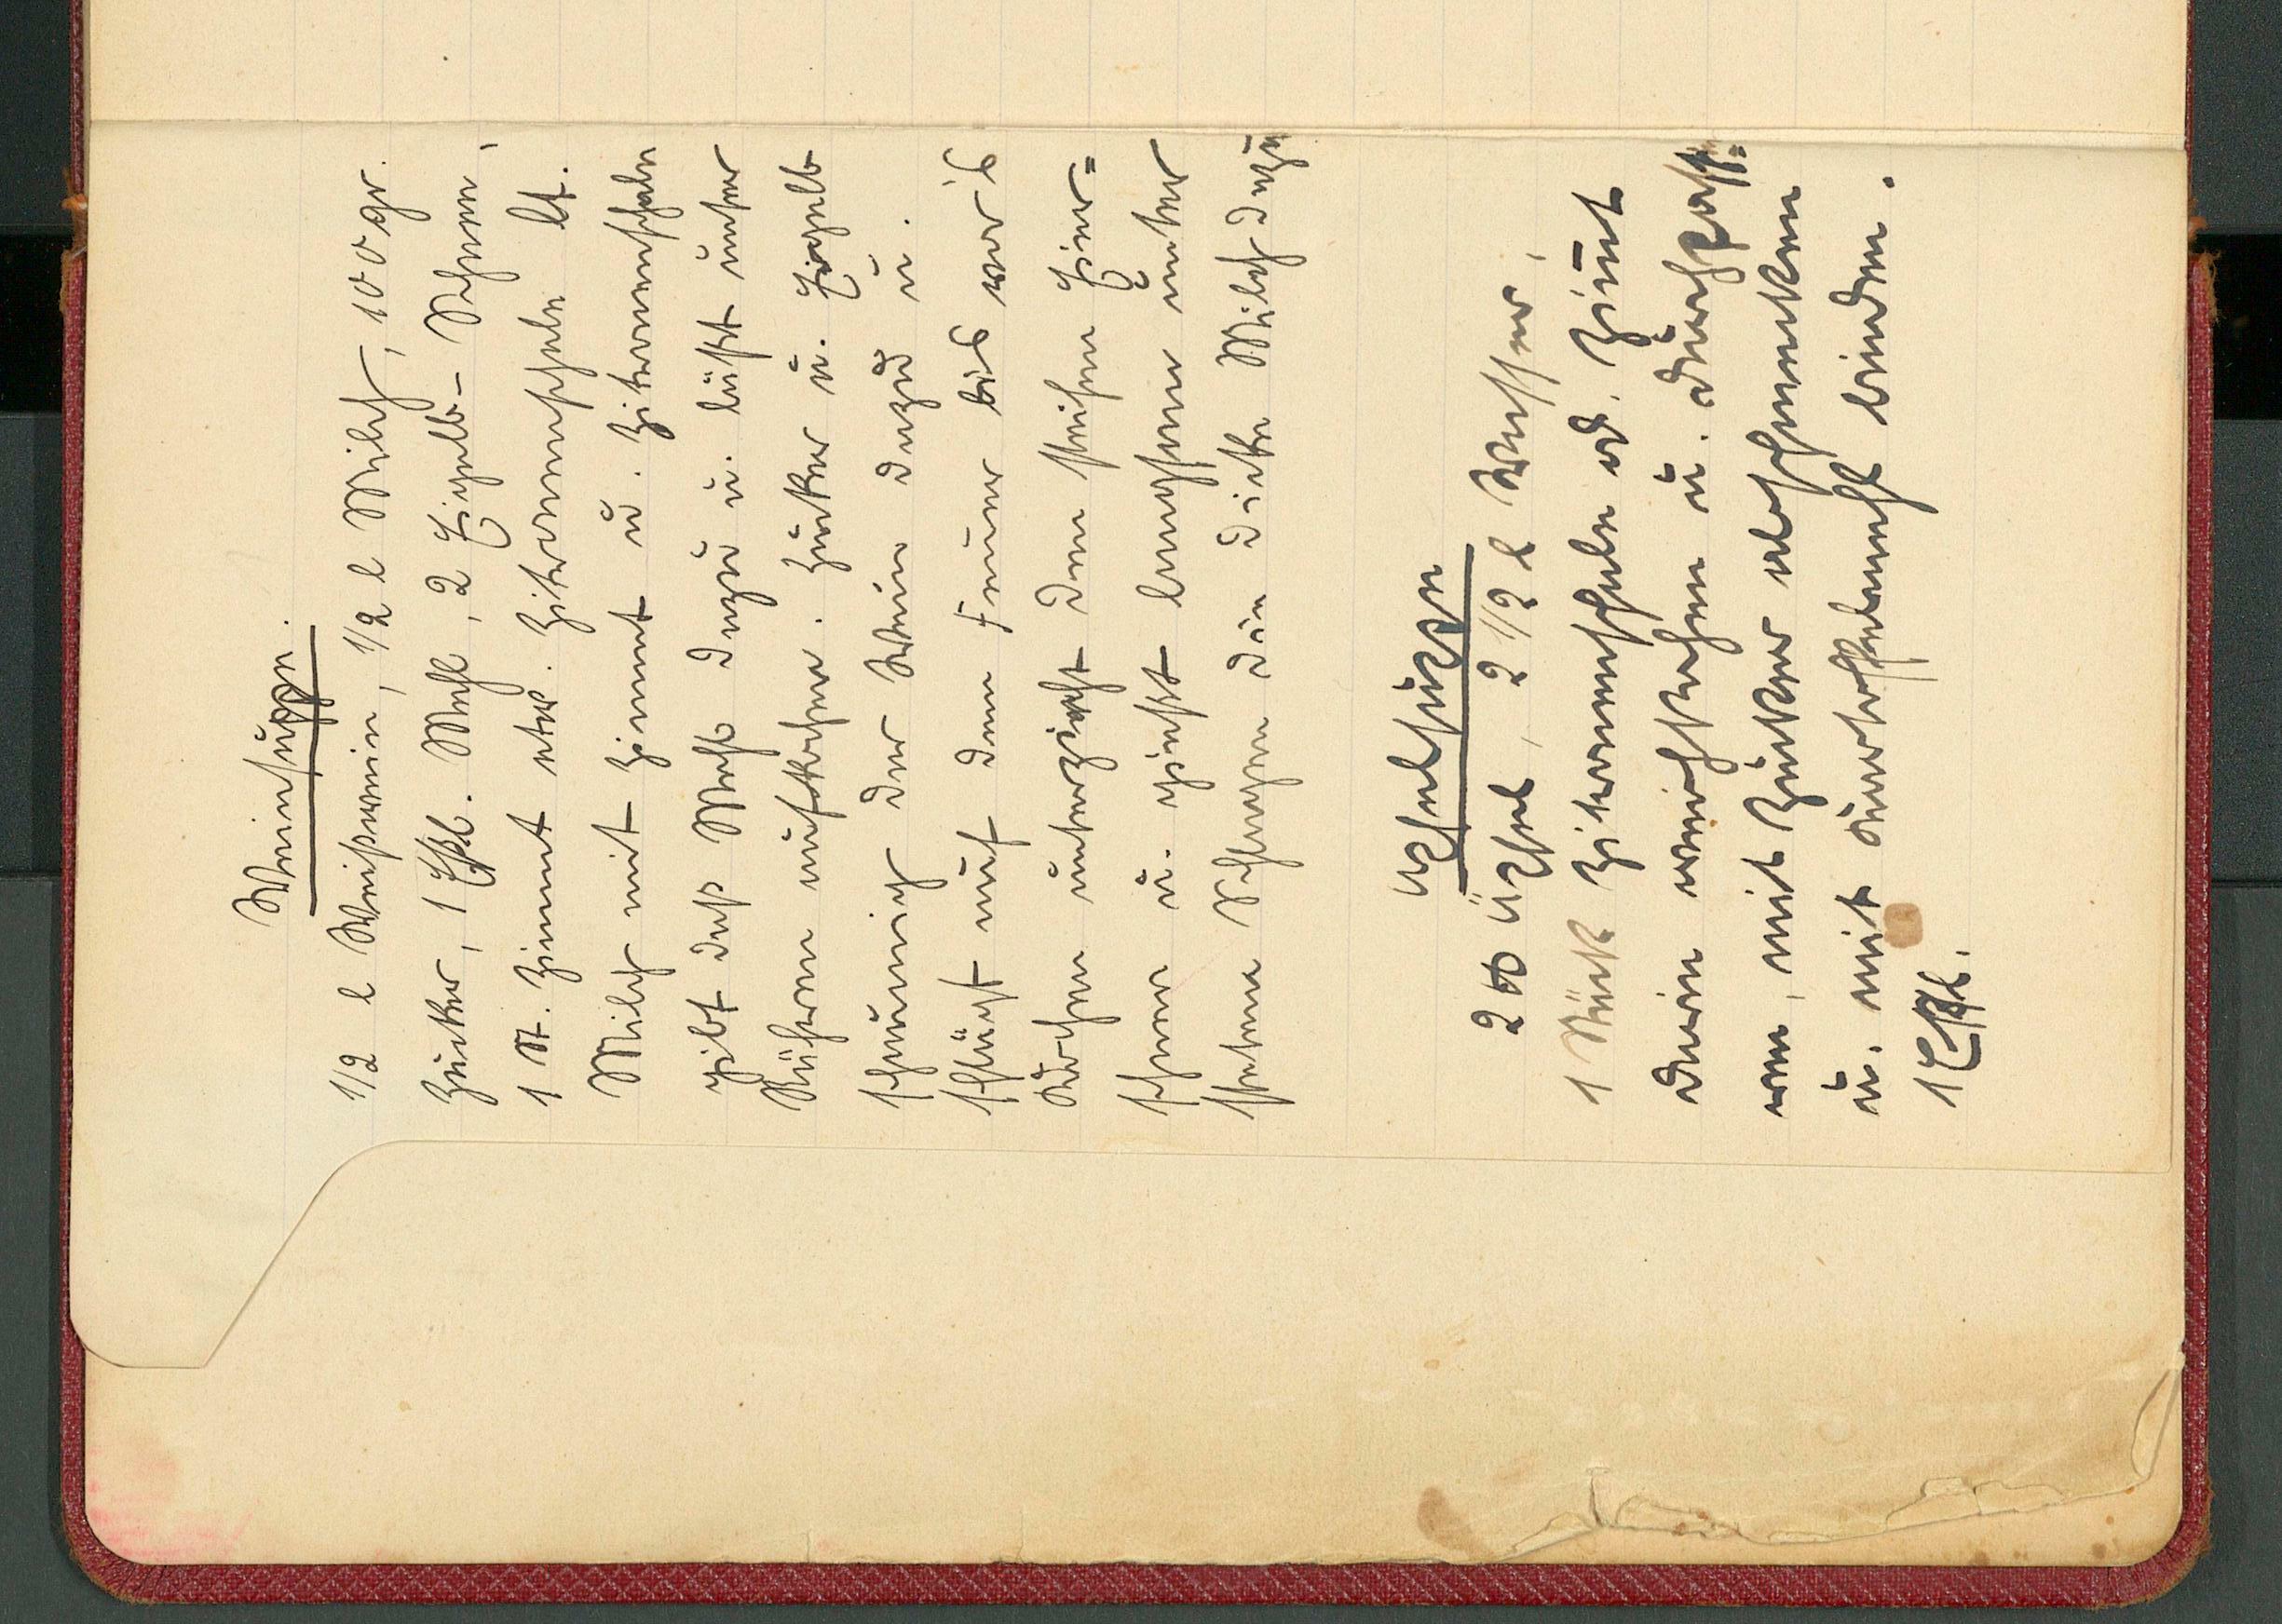 Weinsuppe.
1/2 l Weißwein, 1/2 l Milch, 100 gr.
Zucker, 1 Eßl. Mehl, 2 Eigelb - Schnee,
1 St. Zimmt etw. Zitronenschale lt.
Milch mit Zimmt u. Zitronenschale
gibt daß Mehl dazu u. läßt unter
Rühren aufkochen. Zucker u. Eigelb
schaumig der Wein dazu u.
schlägt auf dem Feuer bis vor's
Kochen unterzieht den steifen Eier=
schnee u. gießt langsam unter
stetem Schlagen die dicke Milch dazu
Apfelsuppe
2 ℔ Äpfel, 2 1/2 l Wasser,
1 Stück Zitronenschale od. Zimt
darin weichkochen u. durchpass=
ren, mit Zucker abschmecken
u. mit Kartoffelmehl binden.
1 Eßl.